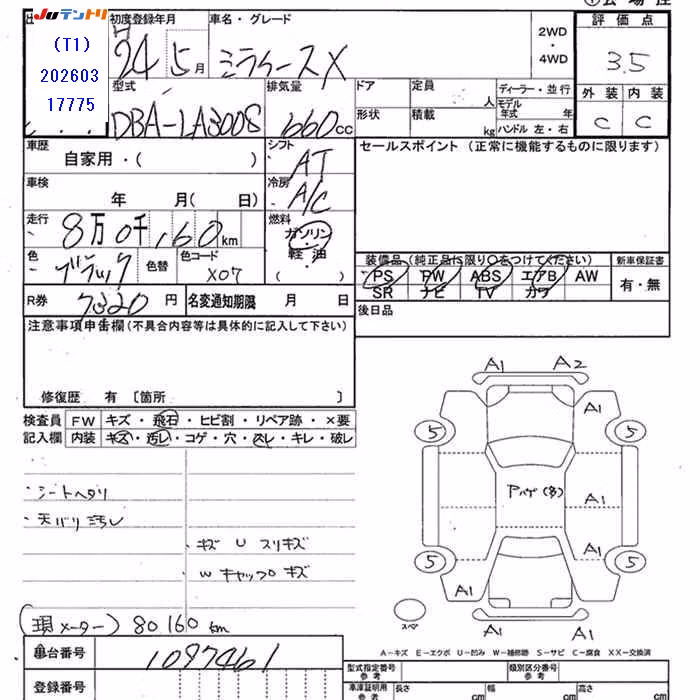 JUテントリ
(T1)
202603
17775
初度登録年月
24 5月
車名・グレード
ミライース X
2WD
・
4WD
評価点
3.5
外装 内装
C C
型式
DBA-LA300S
排気量
660cc
ドア
形状
定員 人
積載 kg
ディーラー・並行
モデル年式 年
ハンドル 左・右
車歴
自家用・( )
シフト
AT
セールスポイント (正常に機能するものに限ります)
車検
年 月( 日)
冷房
A/C
走行
8万0千,160km
燃料
ガソリン・
軽油・
( )
色
ブラック
色替
色コード
X07
装備品 (純正品に限り○をつけてください)
PS PW ABS エアB AW
SR ナビ TV カワ
新車保証書
有・無
R券 7320円
名変通知期限 月 日
後日品
注意事項申告欄(不具合内容等は具体的に記入して下さい)
修復歴 有 〔箇所 〕
検査員 FW キズ・飛石・ヒビ割・リペア跡・×要
記入欄 内装 キズ・汚レ・コゲ・穴・スレ・キレ・破レ
・シートヘタリ
・天バリ汚レ
・キズ U スリキズ
W キャップキズ
(現メーター) 80160km
A1 A2
A1
5 5
アハゲ(多)
A1
A1
5 5
A1
A1 A1
スペア
A-キズ E-エクボ U-凹み W-補修跡 S-サビ C-腐食 XX-交換済
車台番号
1097461
登録番号
型式指定番号
参考
類別区分番号
参考
車庫証明用
参考
長さ cm
幅 cm
高さ cm